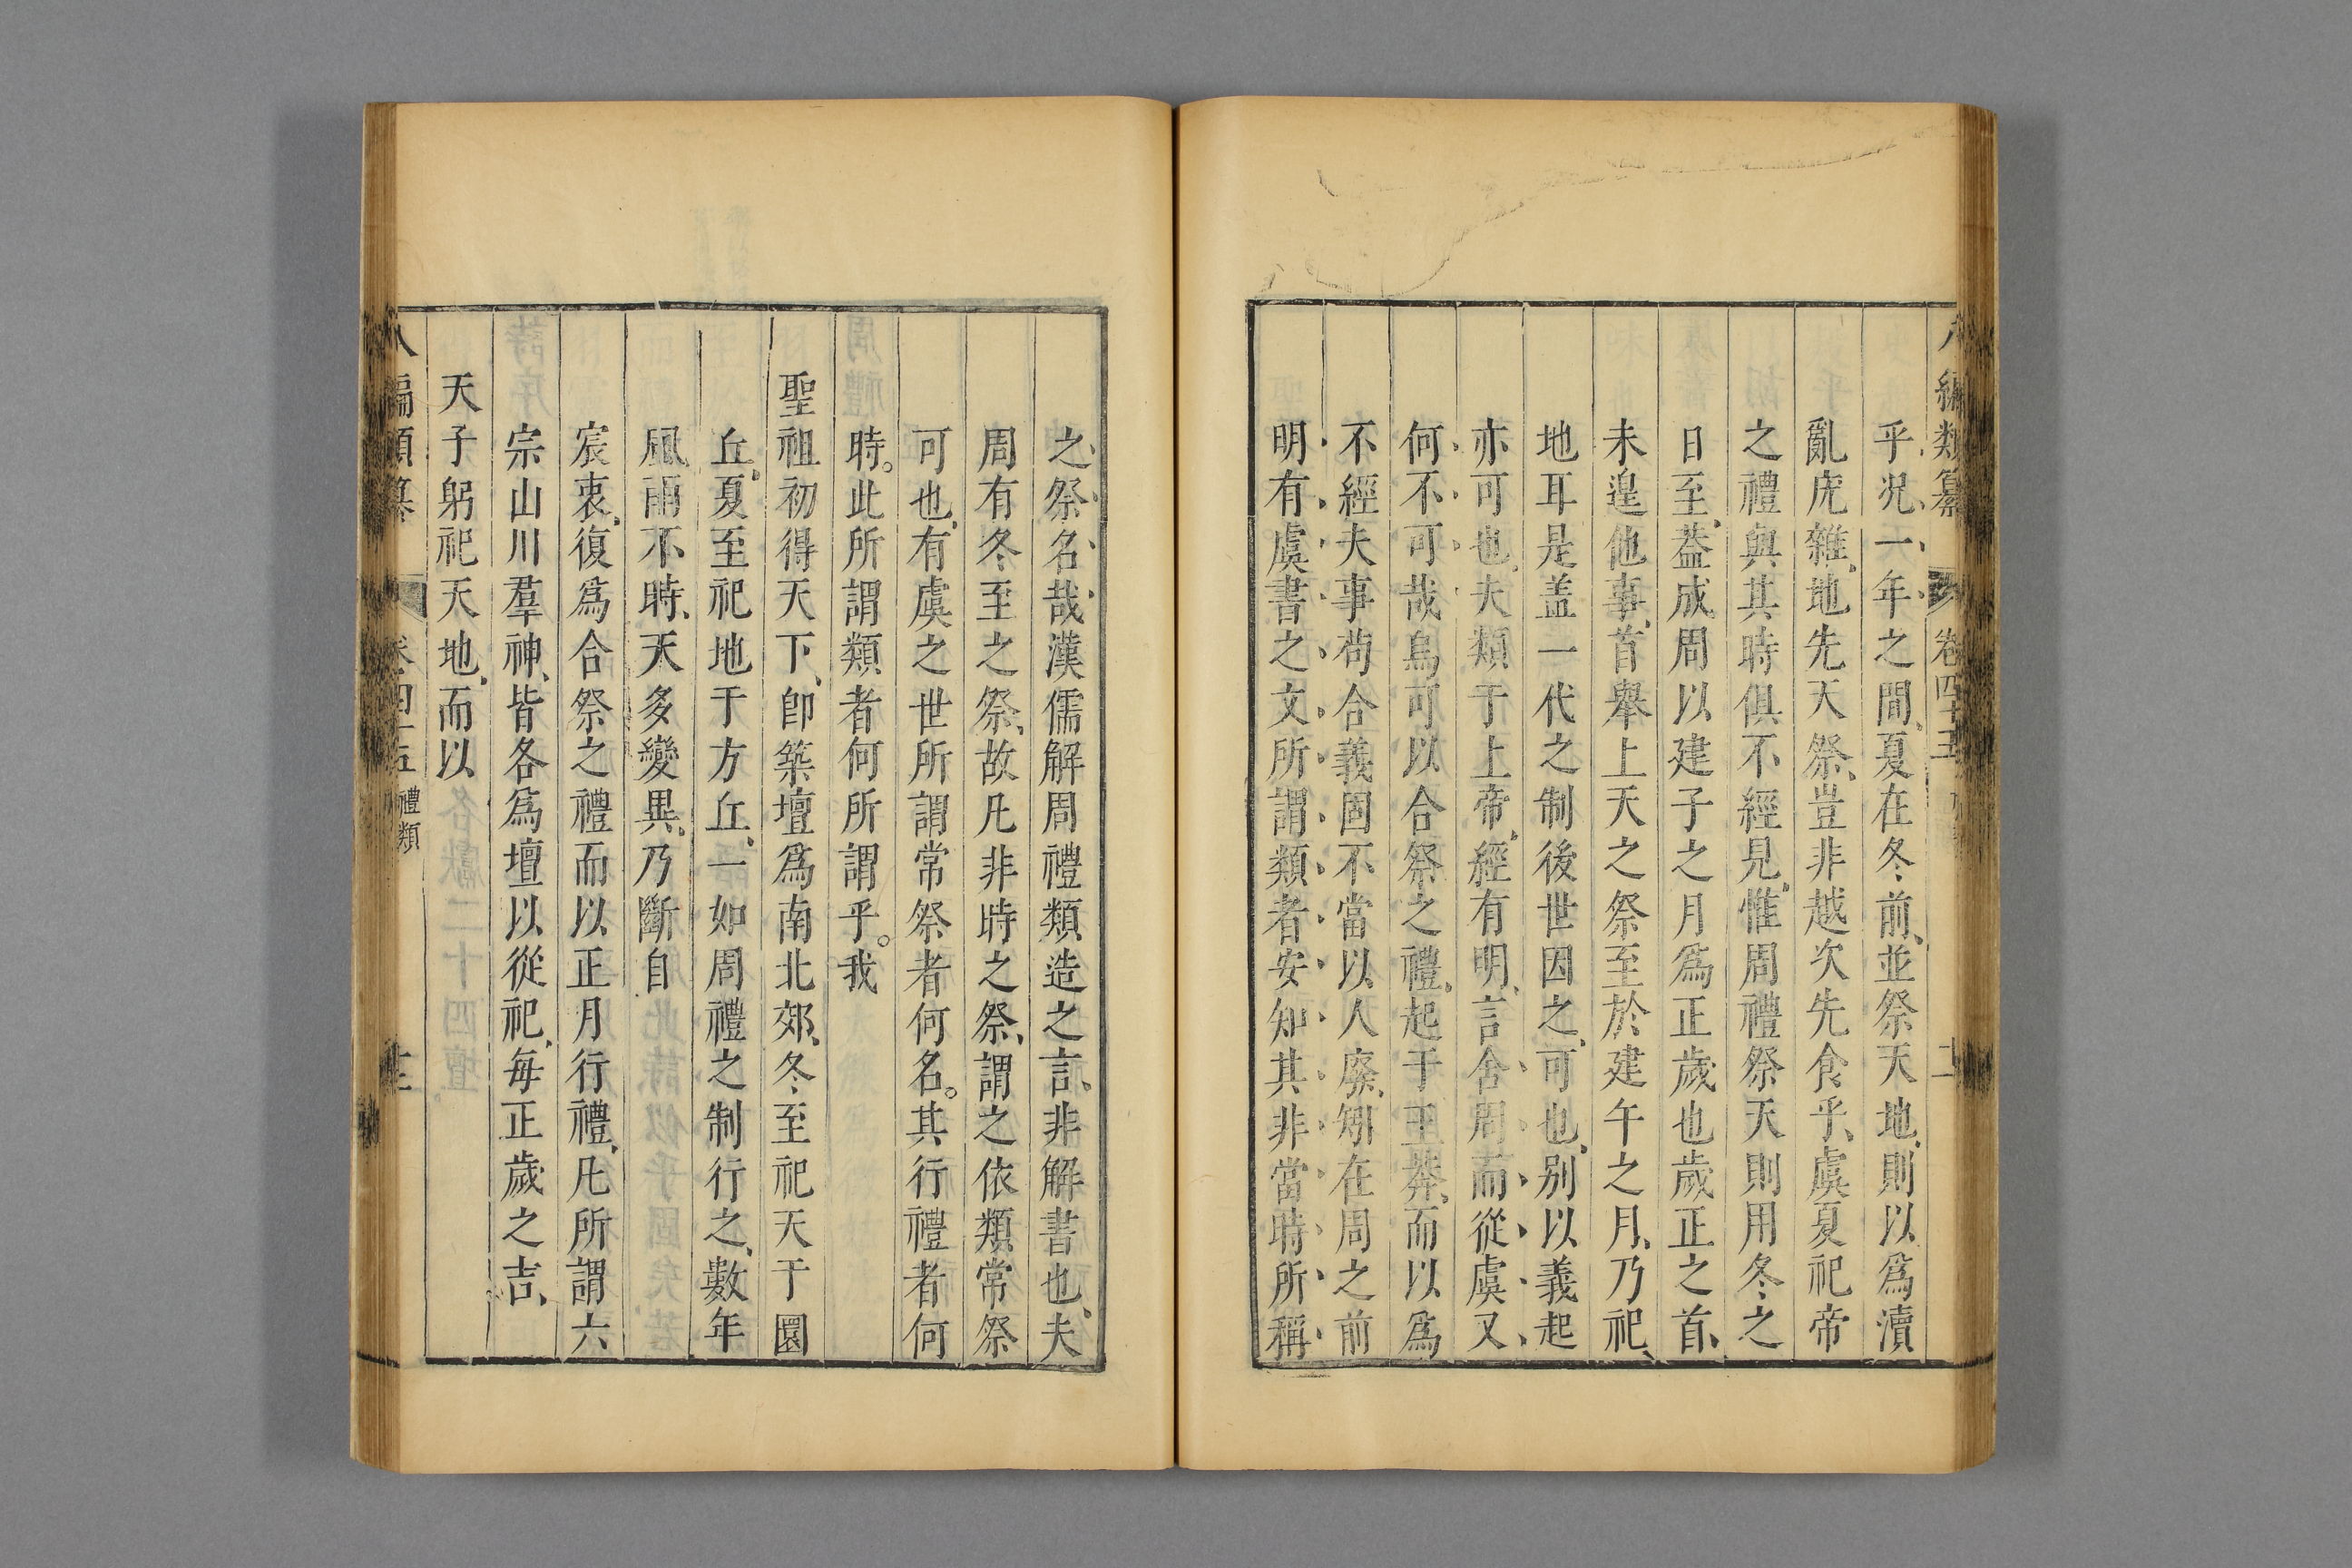 編類纂 卷四十五
乎况一年之間夏在冬前並祭天地則以爲瀆
亂庑雜地先天祭豈非越次先食乎虞夏祀帝
之禮與其時俱不經見惟周禮祭天則用冬之
日至葢成周以建子之月爲正歲也歲正之首
未遑他事首舉上天之祭至於建午之月乃祀
地耳是盖一代之制後世因之可也别以義起
亦可也夫類于上帝經有明言舍周而從虞又
何不可哉烏可以合祭之禮起于王莽而以爲
不經夫事苟合義固不當以人廢矧在周之前
明有虞書之文所謂類者安知其非當時所稱
之祭名哉漢儒解周禮類造之言非解書也夫
周有冬至之祭故凡非時之祭謂之依類常祭
可也有虞之世所謂常祭者何名其行禮者何
時此所謂類者何所謂乎我
聖祖初得天下卽築壇爲南北郊冬至祀天于圜
丘夏至祀地于方丘一如周禮之制行之數年
風雨不時天多變異乃斷自
宸衷復爲合祭之禮而以正月行禮凡所謂六
宗山川羣神皆各爲壇以從祀每正歲之吉
天子躬祀天地而以
八編類纂 卷四十五 禮類